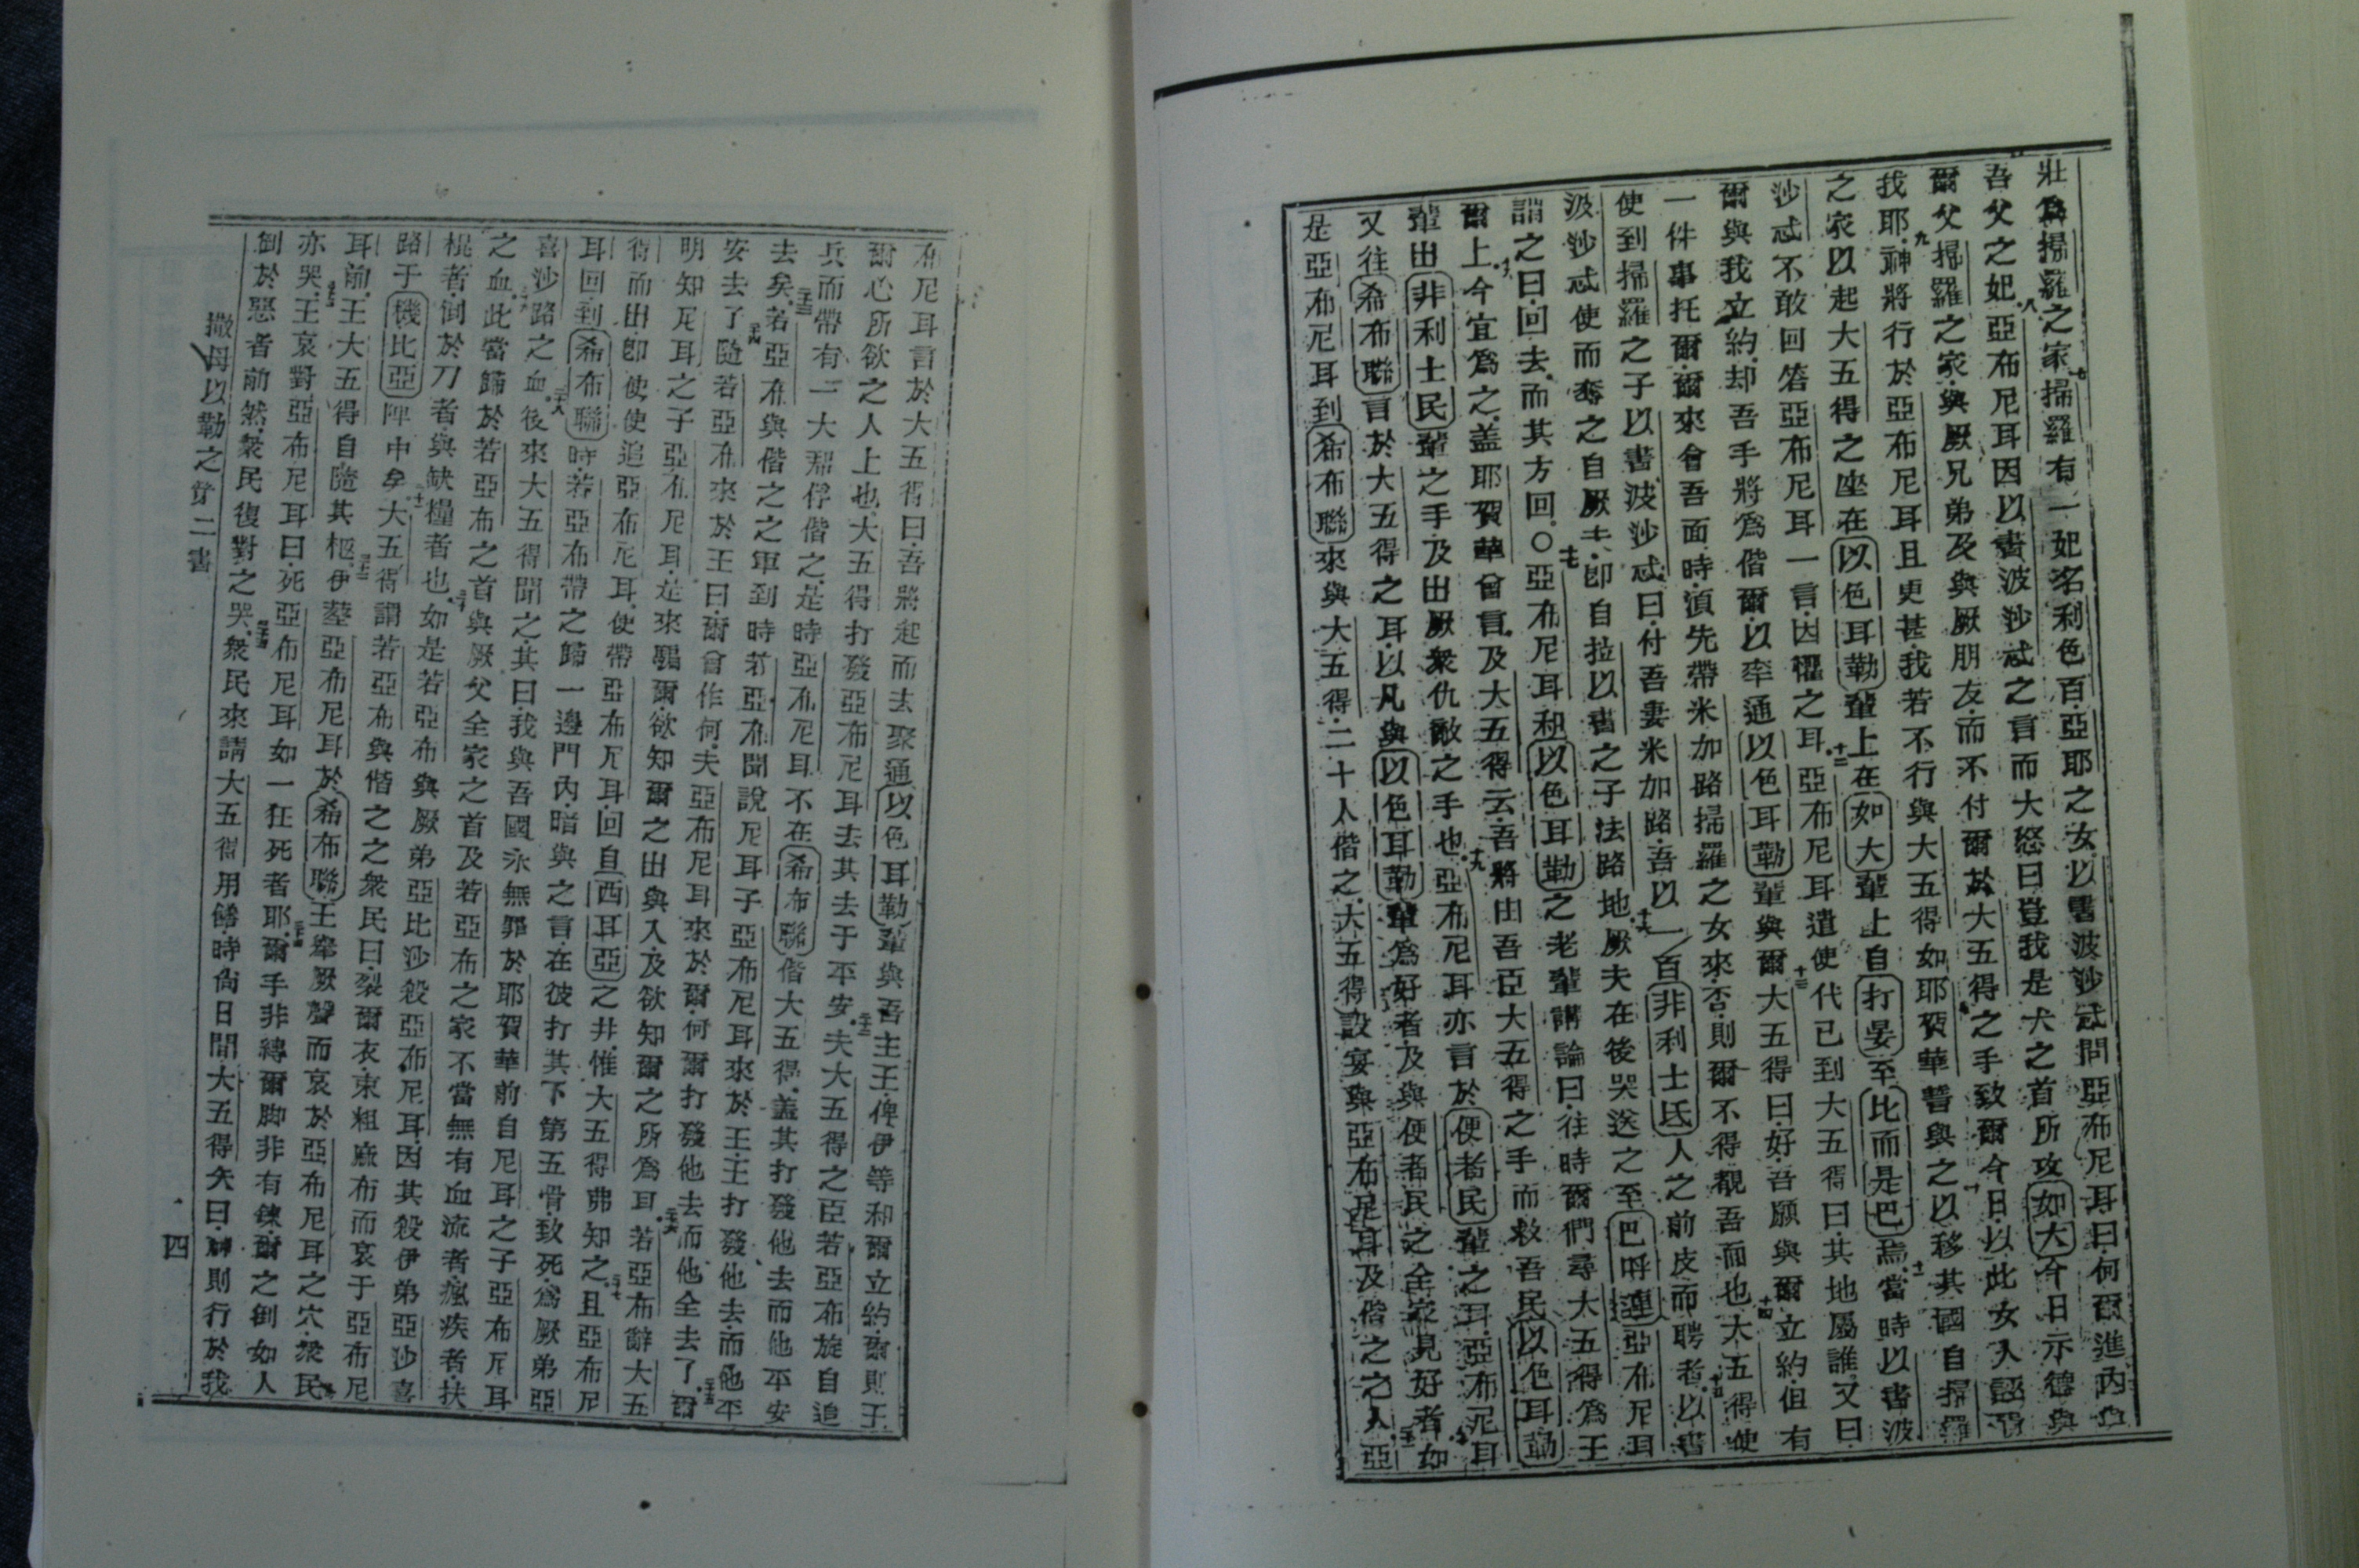 壯爲掃羅之家七掃羅有一妃名利色百亞耶之女以書波沙忒問亞布尼耳曰何爾進內與
吾父之妃八亞布尼耳因以書波沙忒之言而大怒曰豈我是犬之首所攻如大今日示德與
爾父掃羅之家與厥兄弟及與厥朋友而不付爾於大五得之手致爾今日以此女人誣
我耶九神將行於亞布尼耳且更甚我若不行與大五得如耶賀華誓與之十以移其國自掃羅
之家以起大五得之座在以色耳勒輩上在如大輩上自打晏至比而是巴焉十一當時以書波
沙忒不敢回答亞布尼耳一言因懼之耳十二亞布尼耳遣使代已到大五得曰其地屬誰又曰
爾與我立約却吾手將爲偕爾以率通以色耳勒輩與爾十三大五得曰好吾願與爾立約但有
一件事托爾爾來會吾面時須先帶米加路掃羅之女來否則爾不得覩吾面也十四大五得使
使到掃羅之子以書波沙忒曰付吾妻米加路吾以一百非利士氏人之前皮而聘者十五以書
波沙忒使而奪之自厥夫卽自拉以書之子法路地十六厥夫在後哭送之至巴呼連亞布尼耳
謂之曰回去而其方回○十七亞布尼耳和以色耳勒之老輩講論曰往時爾們尋大五得爲王
爾上十八今宜爲之蓋耶賀華曾言及大五得云吾將由吾臣大五得之手而救吾民以色耳勒
輩出非利士民輩之手及出厥衆仇敵之手也十九亞布尼耳亦言於便者民輩之耳亞布尼耳
又往希布聯言於大五得之耳以凡與以色耳勒輩爲好者及與便者民之全家見好者二十如
是亞布尼耳到希布聯來與大五得二十人偕之大五得設宴與亞布尼耳及偕之之人亞
布尼耳言於大五得曰吾將起而去聚通以色耳勒輩與吾主王俾伊等和爾立約爾則王
爾心所欲之人上也大五得打發亞布尼耳去其去于平安二十二夫大五得之臣若亞布旋自追
兵而帶有一大郡俘偕之是時亞布尼耳不在希布聯偕大五得蓋其打發他去而他平安
去矣二十三若亞布與偕之之軍到時若亞布聞說尼耳子亞布尼耳來於王王打發他去而他平
安去了二十四隨若亞布來於王曰爾曾作何夫亞布尼耳來於爾何爾打發他去而他全去了二十五爾
明知尼耳之子亞布尼耳是來騙爾欲知爾之出與入及欲知爾之所爲耳二十六若亞布辭大五
得而出卽使使追亞布尼耳使帶亞布尼耳回自西耳亞之井惟大五得弗知之二十七且亞布尼
耳回到希布聯時若亞布帶之歸一邊門內暗與之言在彼打其下第五骨致死爲厥弟亞
喜沙路之血二十八後來大五得聞之其曰我與吾國永無罪於耶賀華前自尼耳之子亞布尼耳
之血二十九此當歸於若亞布之首與厥父全家之首及若亞布之家不當無有血流者瘋疾者扶
棍者倒於刀者與缺糧者也三十如是若亞布與厥弟亞比沙殺亞布尼耳因其殺伊弟亞沙喜
路于機比亞陣中矣三十一大五得謂若亞布與偕之之衆民曰裂爾衣束粗麻布而哀于亞布尼
耳前王大五得自隨其柩三十二伊塟亞布尼耳於希布聯王舉厥聲而哀於亞布尼耳之穴衆民
亦哭三十三王哀對亞布尼耳曰死亞布尼耳如一狂死者耶三十四爾手非縛爾脚非有鍊爾之倒如人
倒於惡者前然衆民復對之哭三十五衆民來請大五得用饍時尚日間大五得矢曰神則行於我
撒母以勒之第二書
四